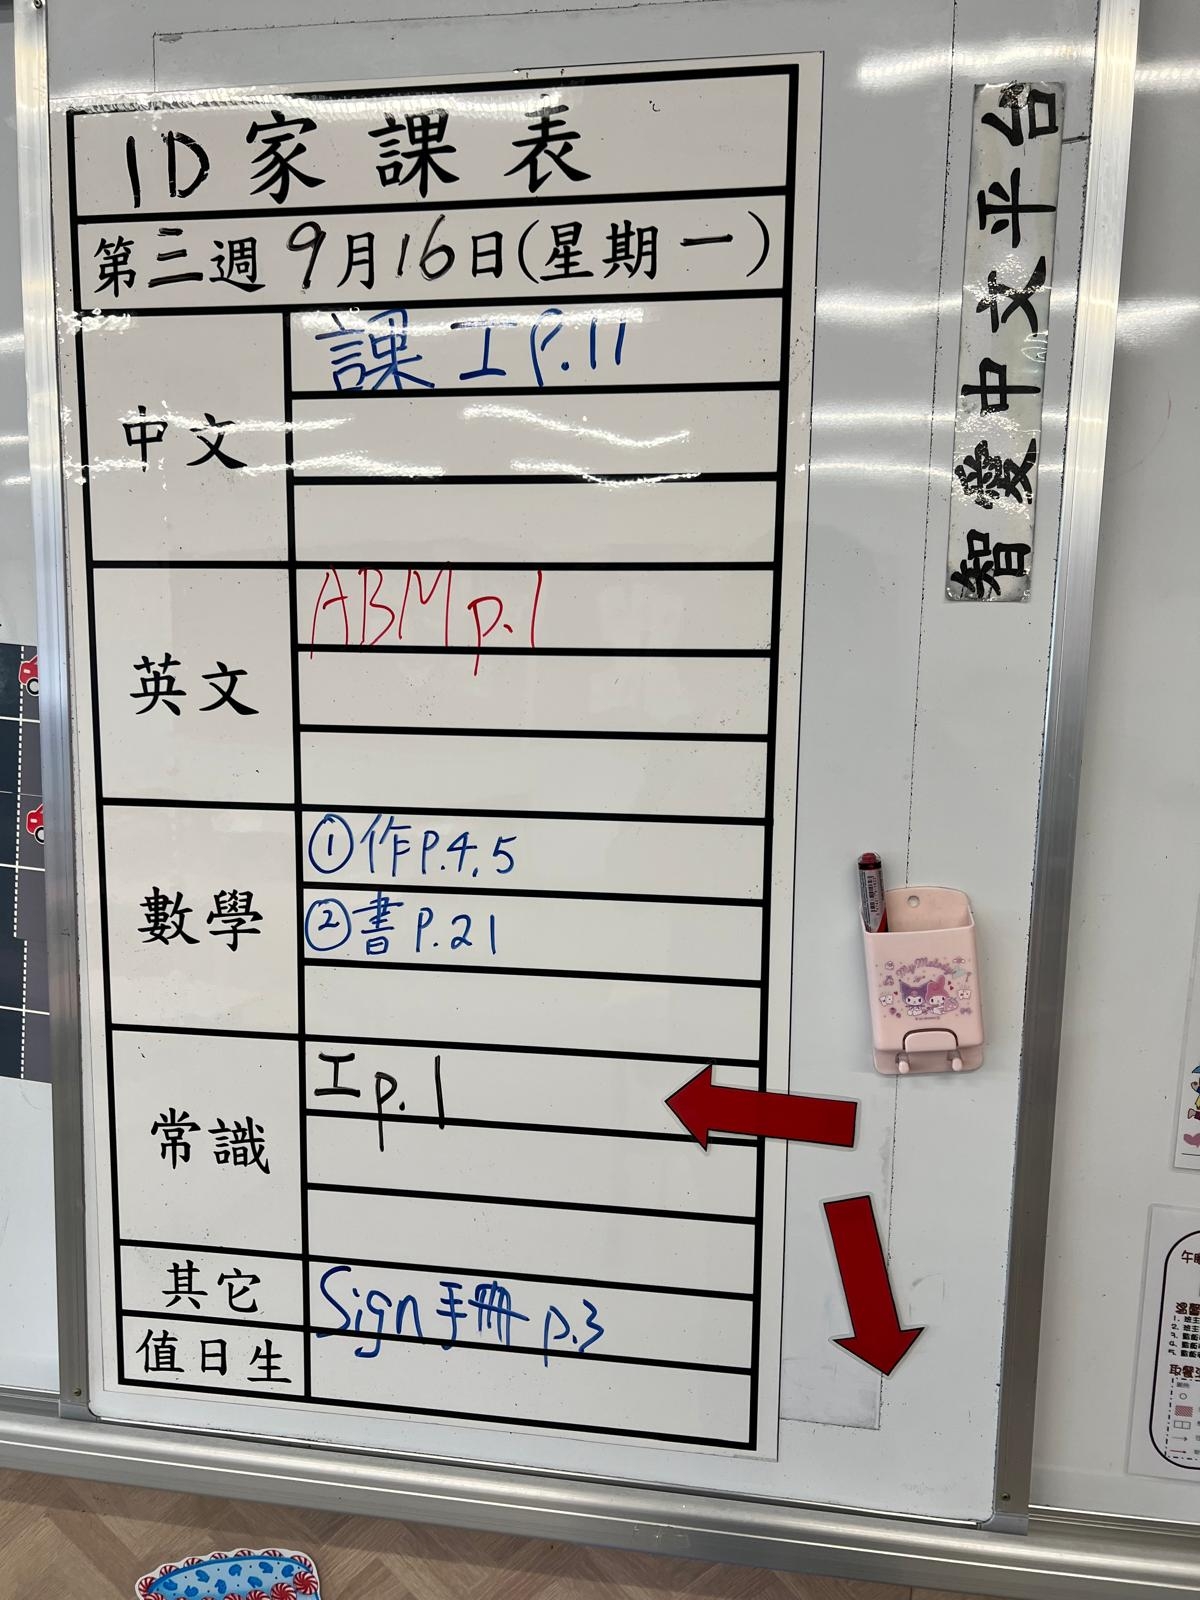 1D家課表
第三週 9月16日(星期一)
中文
課工P.11
英文
ABM p.1
數學
①作P.4,5
②書P.21
常識
工p.1
其它
Sign手冊 p.3
值日生
智愛中文平台
My Melody
午
溫馨
取餐